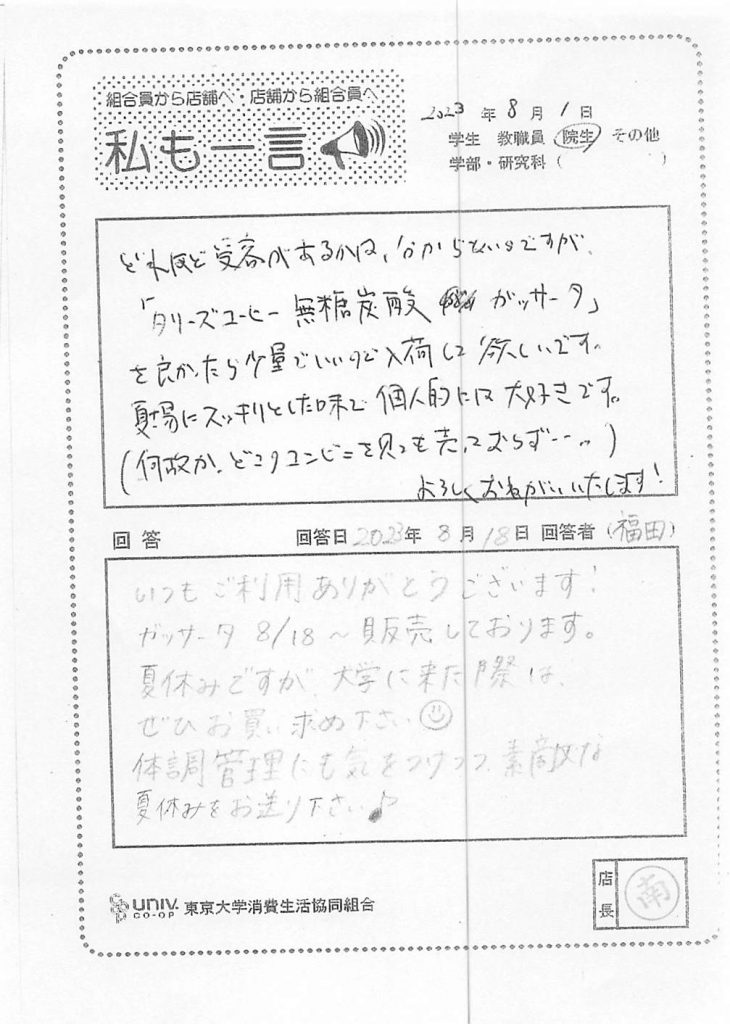 組合員から店舗へ・店舗から組合員へ
私も一言
2023年8月1日
学生 教職員 院生 その他
学部・研究科( )
どれほど受容があるかは、分からないのですが、
「タリーズコーヒー 無糖炭酸 ガッサータ」
を良かったら少量でいいので入荷して欲しいです。
夏場にスッキリとした味で個人的には大好きです。
(何故か、どこのコンビニを見ても売っておらず……)
よろしくおねがいいたします!
回答 回答日2023年8月18日 回答者(福田)
いつもご利用ありがとうございます!
ガッサータ 8/18~販売しております。
夏休みですが、大学に来た際は、
ぜひお買い求め下さい
体調管理にも気をつけつつ、素敵な
夏休みをお送り下さい♪
UNIV. CO-OP 東京大学消費生活協同組合
店長 南